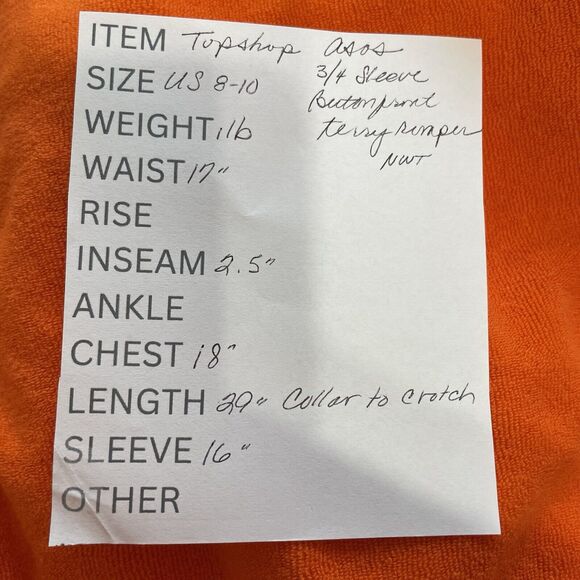 ITEM Topshop asos
SIZE US 8-10 3/4 Sleeve
Button front
WEIGHT 1 lb terry romper
WAIST 17" NWT
RISE
INSEAM 2.5"
ANKLE
CHEST 18"
LENGTH 29" Collar to Crotch
SLEEVE 16"
OTHER